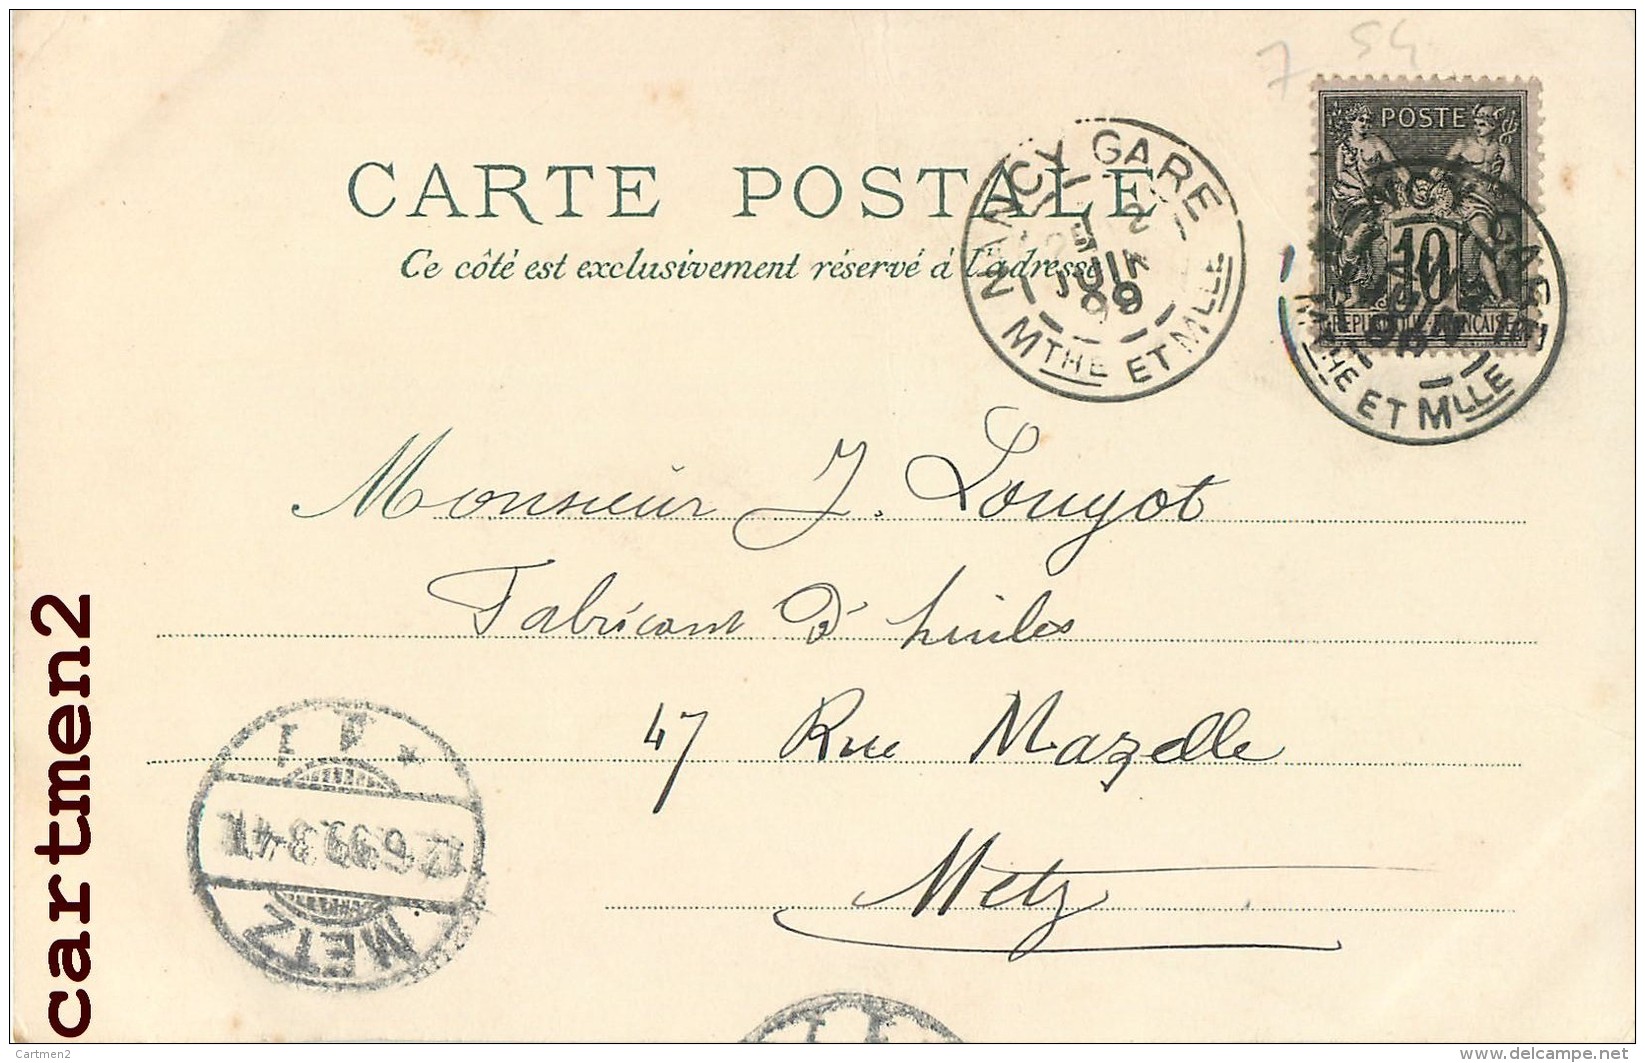 7 54
POSTE
10
REPUBLIQUE FRANCAISE
CARTE POSTALE
Ce côté est exclusivement réservé à l'adresse
NANCY GARE
JUIN
99
MTHE ET MLLE
NANCY GARE
MTHE ET MLLE
Monsieur J. Louyot
Fabricant d'huiles
47 Rue Mazelle
Metz
METZ
12.6.99.3-4N.
* 1 1
1 1
cartmen2
Cartmen2
delcampe.net